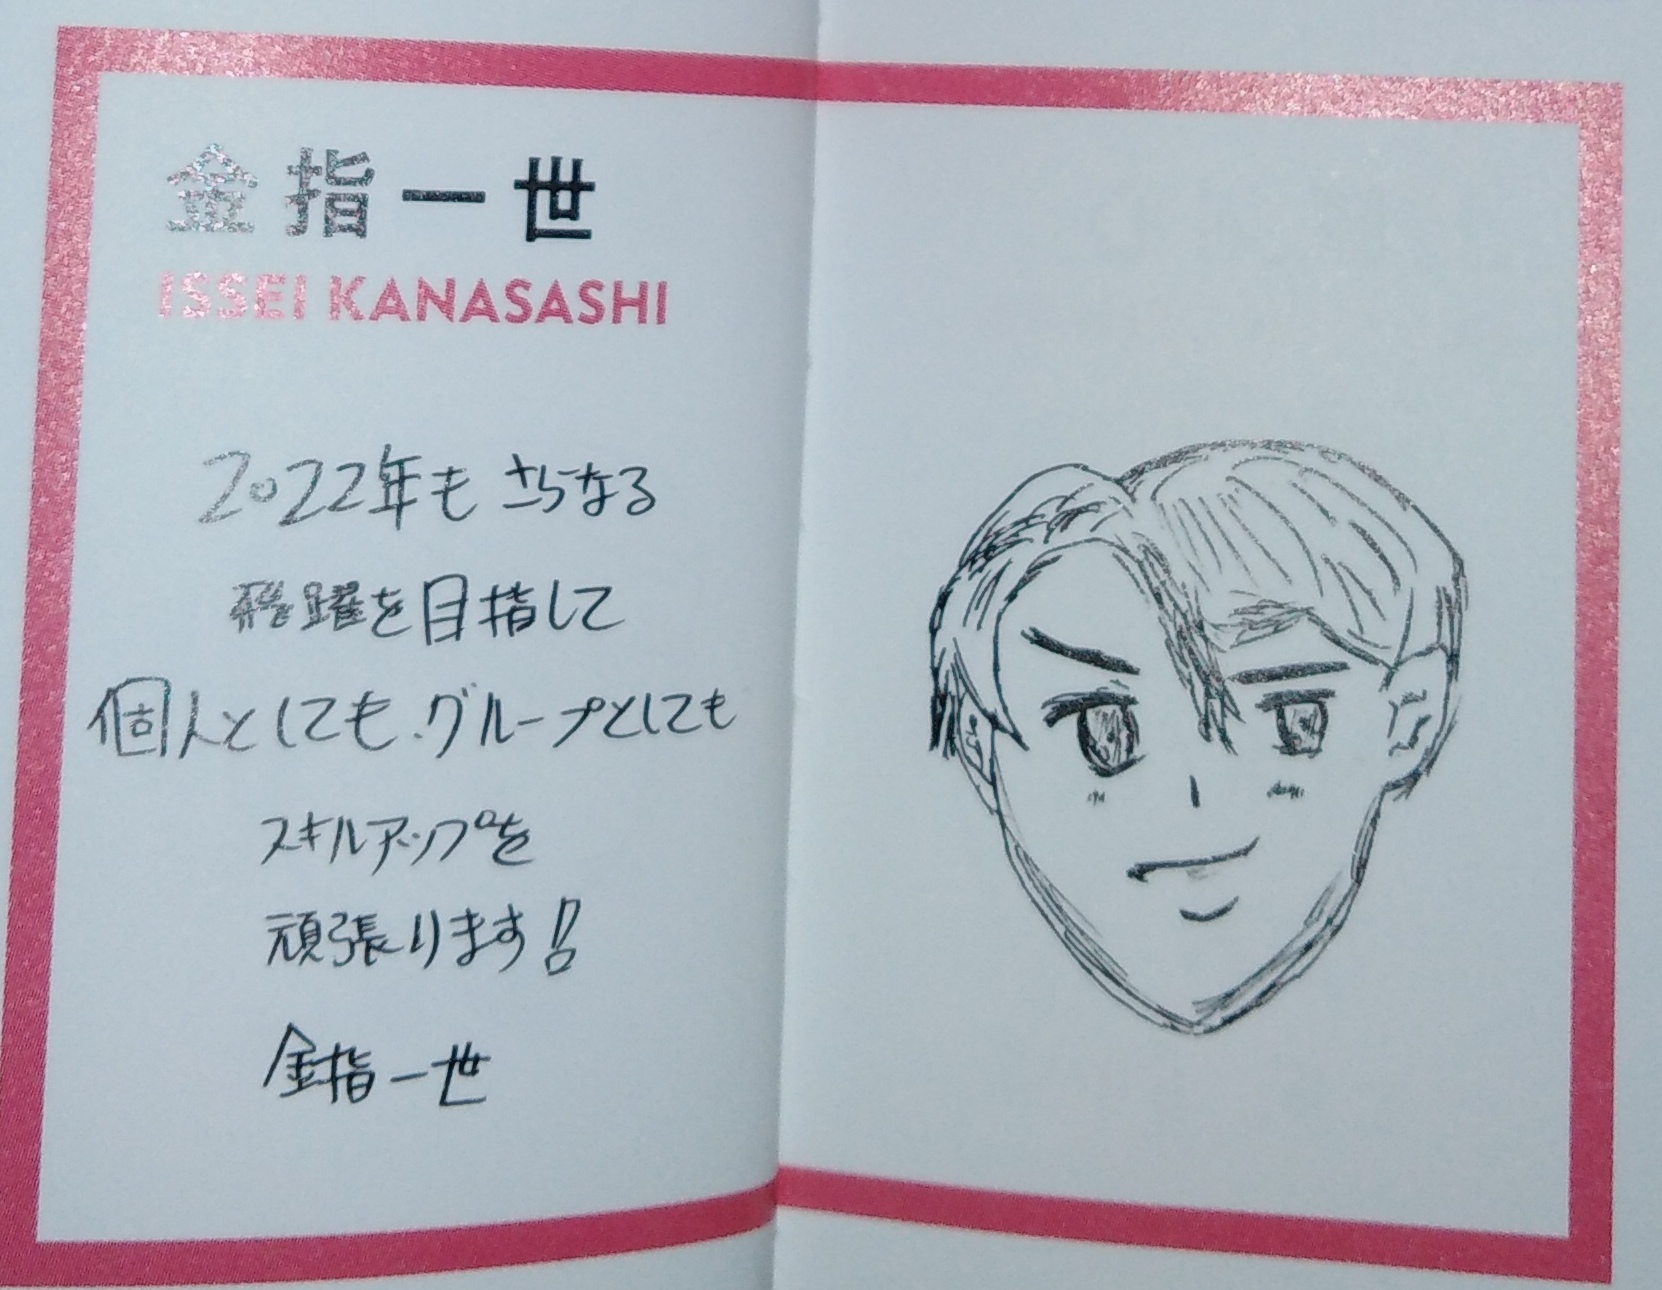 金指一世
ISSEI KANASASHI
2022年もさらなる
飛躍を目指して
個人としても、グループとしても
スキルアップを
頑張ります!!
金指一世